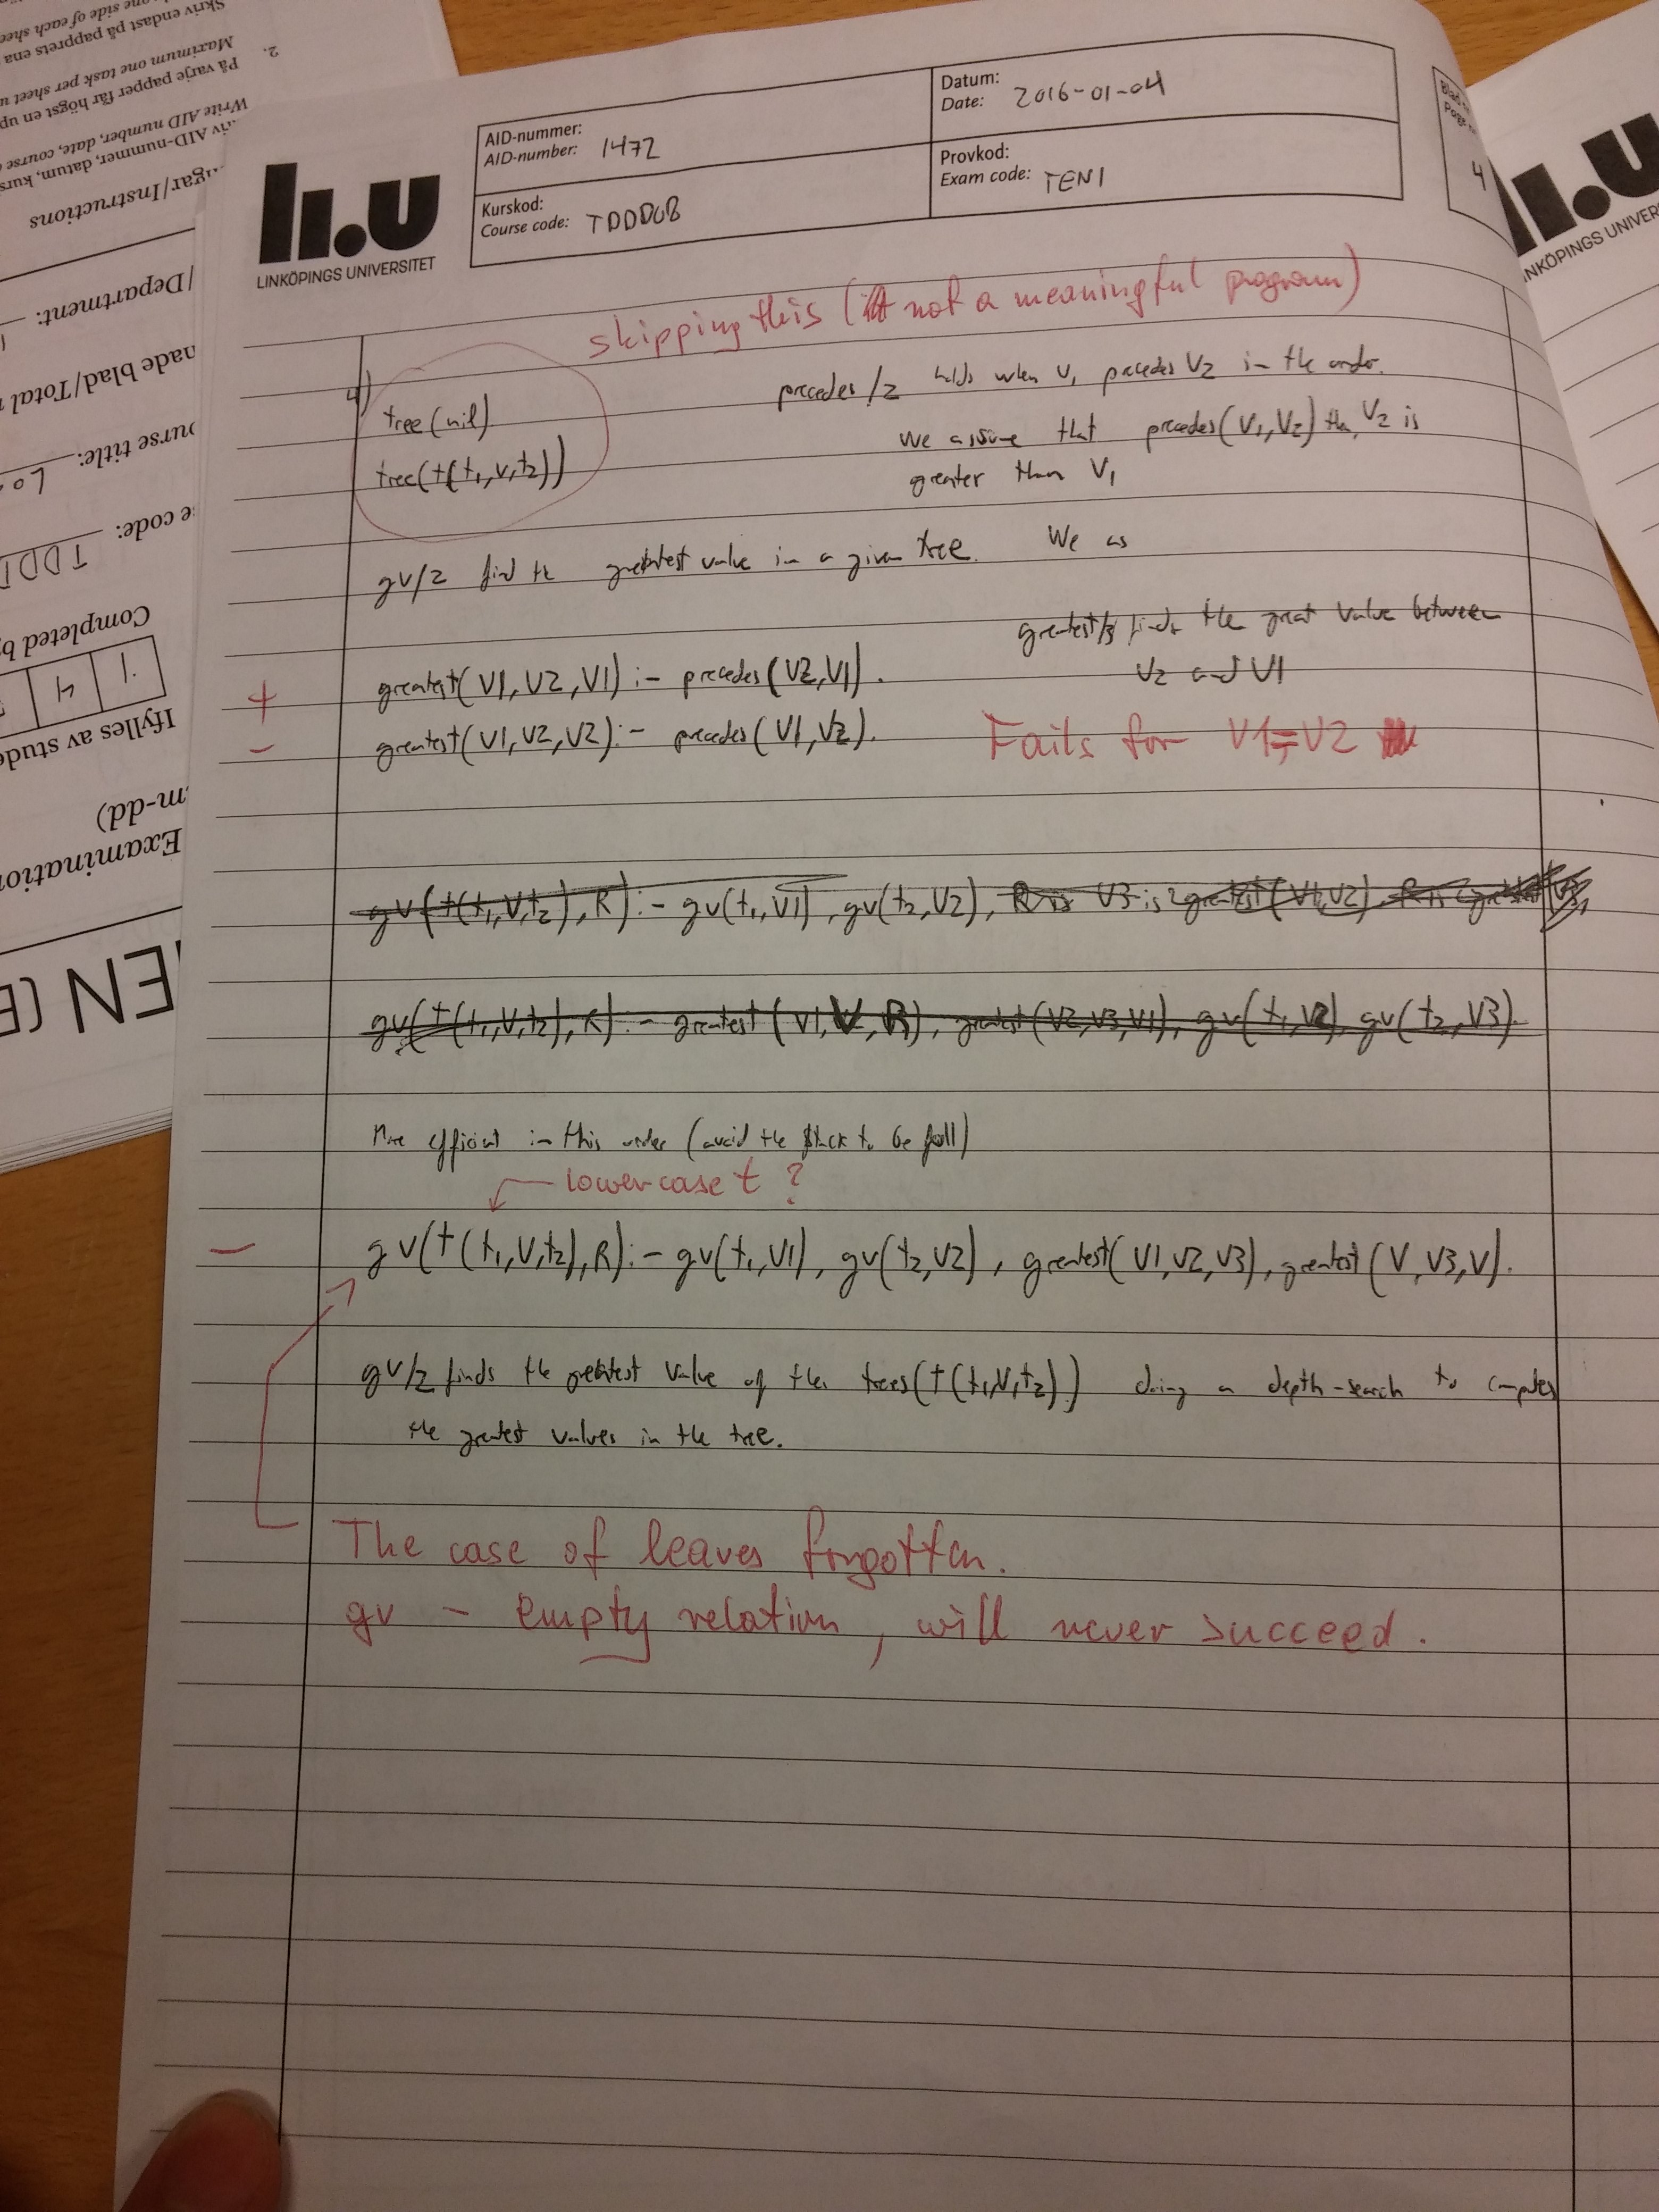 Skriv endast på papprets ena
one side of each sheet
2.
På varje papper får högst en
Maximum one task per sheet
AID-nummer, datum,
Write AID number, date, course
/Instructions
/Department:
/Total
title: Lo
code: TDDD
Completed by
1 4
Ifylles av stude
m-dd)
Examination
EN (E
LiU
LINKÖPINGS UNIVERSITET
AID-nummer:
AID-number: 1472
Datum:
Date: 2016-01-04
Kurskod:
Course code: TDDD08
Provkod:
Exam code: TEN1
4
LiU
skipping this (not a meaningful program)
4)
tree(nil)
tree(t(t1,v,t2))
precedes/2 holds when V1 precedes V2 in the order.
We assume that precedes(V1,V2) then V2 is
greater than V1
gv/2 find the greatest value in a given tree. We as
greatest/3 finds the great value between
V2 and V1
+ greatest(V1,V2,V1) :- precedes(V2,V1).
- greatest(V1,V2,V2) :- precedes(V1,V2).
Fails for V1=V2
gv(t(t1,V,t2),R) :- gv(t1,V1), gv(t2,V2), R is V3 is greatest(V1,V2)
gv(t(t1,V,t2),R) :- greatest(V1,V,R), greatest(V2,V3,V1), gv(t1,V2), gv(t2,V3).
More efficient in this order (avoid the stack to be full)
lower case t ?
- gv(t(t1,V,t2),R) :- gv(t1,V1), gv(t2,V2), greatest(V1,V2,V3), greatest(V,V3,V).
gv/2 finds the greatest value of the trees(t(t1,V,t2)) doing a depth-search to computes
the greatest values in the tree.
The case of leaves forgotten.
gv - empty relation, will never succeed.